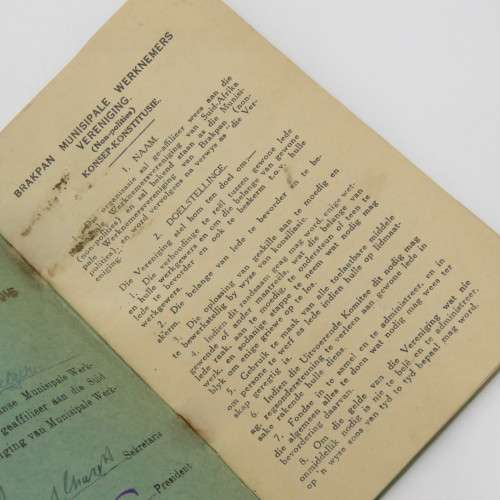 BRAKPAN MUNISIPALE WERKNEMERS
VERENIGING.
(Non-polities)
KONSEP-KONSTITUSIE.
1. NAAM.
Die organisasie sal geaffilieer wees aan die
Werknemersvereniging van Suid-Afrika
(non-polities) sal bekend staan as die Munisi-
pale Werknemersvereniging van Brakpan (non-
polities), en word vervolgens na verwys as die Ver-
eniging.
2. DOELSTELLINGE.
Die Vereniging stel hom ten doel om:—
1. Die verhoudinge te reël tussen gewone lede
en hulle werkgewers en die belange van gewone
lede te bevorder en ook te beskerm t.o.v. hulle
werkgewers.
2. Die belange van lede te bevorder en te be-
skerm.
3. Die oplossing van geskille aan te moedig en
te bewerkstellig by wyse van
4. Indien dit raadsaam geag mag word, enige wet-
gewende of ander maatreëls, wat die belange van
lede raak, aan te moedig, te ondersteun of teen te
werk, en sodanige stappe te neem wat nodig mag
blyk om
5. Gebruik te maak van alle toelaatbare middele
om persone te werf as lede indien hulle op lidmaat-
skap geregtig is.
6. Indien die Uitvoerende Komitee dit nodig mag
ag, regsondersteuning te verleen aan gewone lede in
sake rakende hulle diens.
7. Fondse in te samel en te administreer, en in
die algemeen alles te doen wat nodig mag wees ter
bevordering daarvan.
8. Om die gelde van die Vereniging wat nie
onmiddellik nodig is nie te belê en te administreer
op 'n wyse soos van tyd tot tyd bepaal mag word.
Munisipale Werk-
geaffilieer aan die Suid
niging van Munisipale Werk-
Sekretaris
President